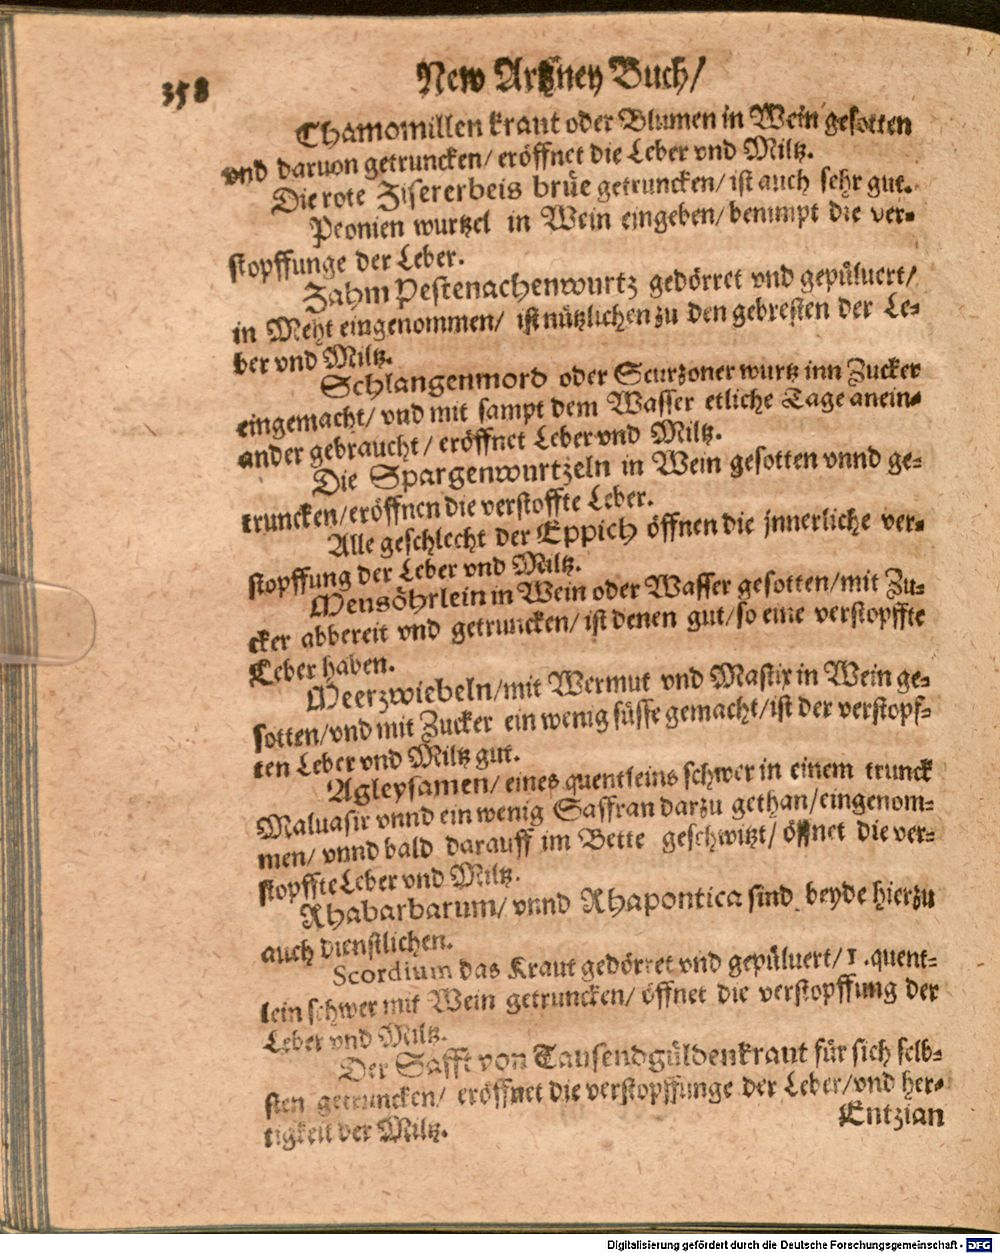 358
New Artzney Buch/
Chamomillen kraut oder Blumen in Wein gesotten
vnd daruon getruncken/ eröffnet die Leber vnd Miltz.
Die rote Zisererbeis brüe getruncken/ ist auch sehr gut.
Peonien wurtzel in Wein eingeben/ benimpt die ver-
stopffunge der Leber.
Zahm Pestenachenwurtz gedörret vnd gepüluert/
in Meht eingenommen/ ist nützlichen zu den gebresten der Le-
ber vnd Miltz.
Schlangenmord oder Scurzoner wurtz inn Zucker
eingemacht/ vnd mit sampt dem Wasser etliche Tage anein-
ander gebraucht/ eröffnet Leber vnd Miltz.
Die Spargenwurtzeln in Wein gesotten vnnd ge-
truncken/ eröffnen die verstoffte Leber.
Alle geschlecht der Eppich öffnen die jnnerliche ver-
stopffung der Leber vnd Miltz.
Meusöhrlein in Wein oder Wasser gesotten/ mit Zu-
cker abbereit vnd getruncken/ ist denen gut/ so eine verstopffte
Leber haben.
Meerzwiebeln/ mit Wermut vnd Mastix in Wein ge-
sotten/ vnd mit Zucker ein wenig süsse gemacht/ ist der verstopf-
ten Leber vnd Miltz gut.
Agleysamen/ eines quentleins schwer in einem trunck
Maluasir vnnd ein wenig Saffran darzu gethan/ eingenom-
men/ vnnd bald darauff im Bette geschwitzt/ öffnet die ver-
stopffte Leber vnd Miltz.
Rhabarbarum/ vnnd Rhapontica sind beyde hierzu
auch dienstlichen.
Scordium das Kraut gedörret vnd gepüluert/ 1. quent-
lein schwer mit Wein getruncken/ öffnet die verstopffung der
Leber vnd Miltz.
Der Safft von Tausendgüldenkraut für sich selb-
sten getruncken/ eröffnet die verstopffunge der Leber/ vnd her-
tigkeit der Miltz.
Entzian
Digitalisierung gefördert durch die Deutsche Forschungsgemeinschaft - DFG